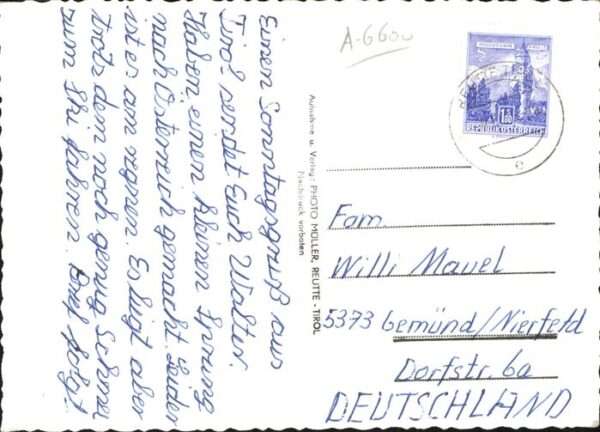 Einen Sonntagsgruß aus
Tirol sendet Euch Walter.
Haben einen kleinen Sprung
nach Österreich gemacht. Leider
ist es am regnen. Es liegt aber
trotz dem noch genug Schnee
zum Ski fahren. Brief folgt.
Aufnahme u. Verlag: PHOTO MÜLLER, REUTTE - TIROL
Nachdruck verboten
A-6600
1.50
REPUBLIK ÖSTERREICH
Fam.
Willi Mauel
5373 Gemünd/Nierfeld
Dorfstr. 6a
DEUTSCHLAND